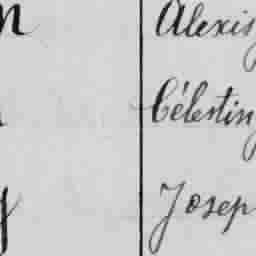 n Alexis
Célestin
y Josep